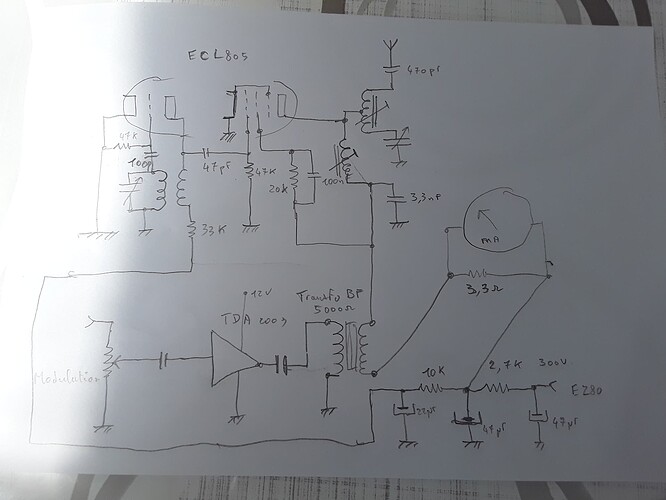 ECL805
470pf
47K
100p
47pf
47K
20K
100n
3,3nF
33K
mA
3,3Ω
12V
Transfo BF
5000Ω
TDA 2003
Modulation
10K
2,7K
300V
EZ80
22µf
47µf
47µf